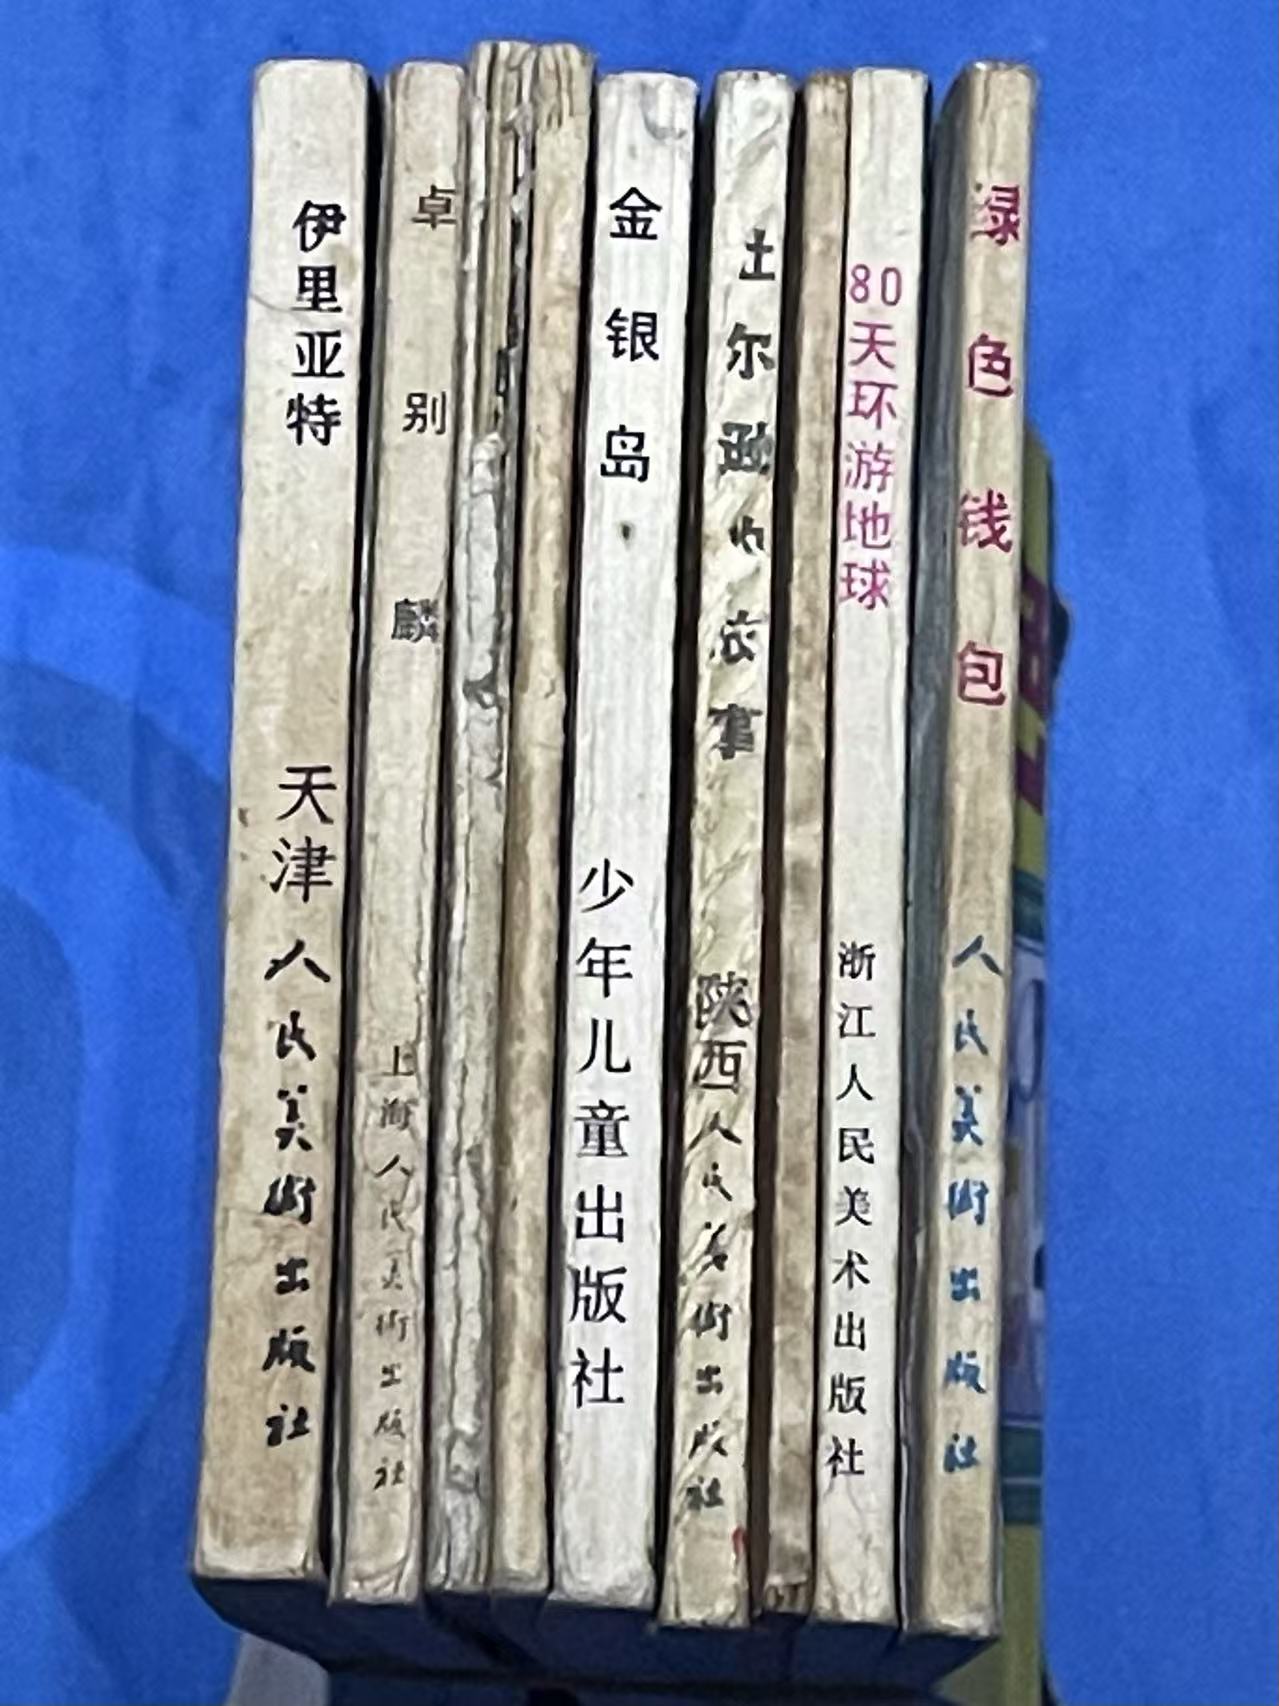 伊里亚特
天津人民美術出版社
卓别麟
上海人民美術出版社
金银岛
少年儿童出版社
土尔逊的故事
陕西人民美術出版社
80天环游地球
浙江人民美术出版社
绿色钱包
人民美術出版社